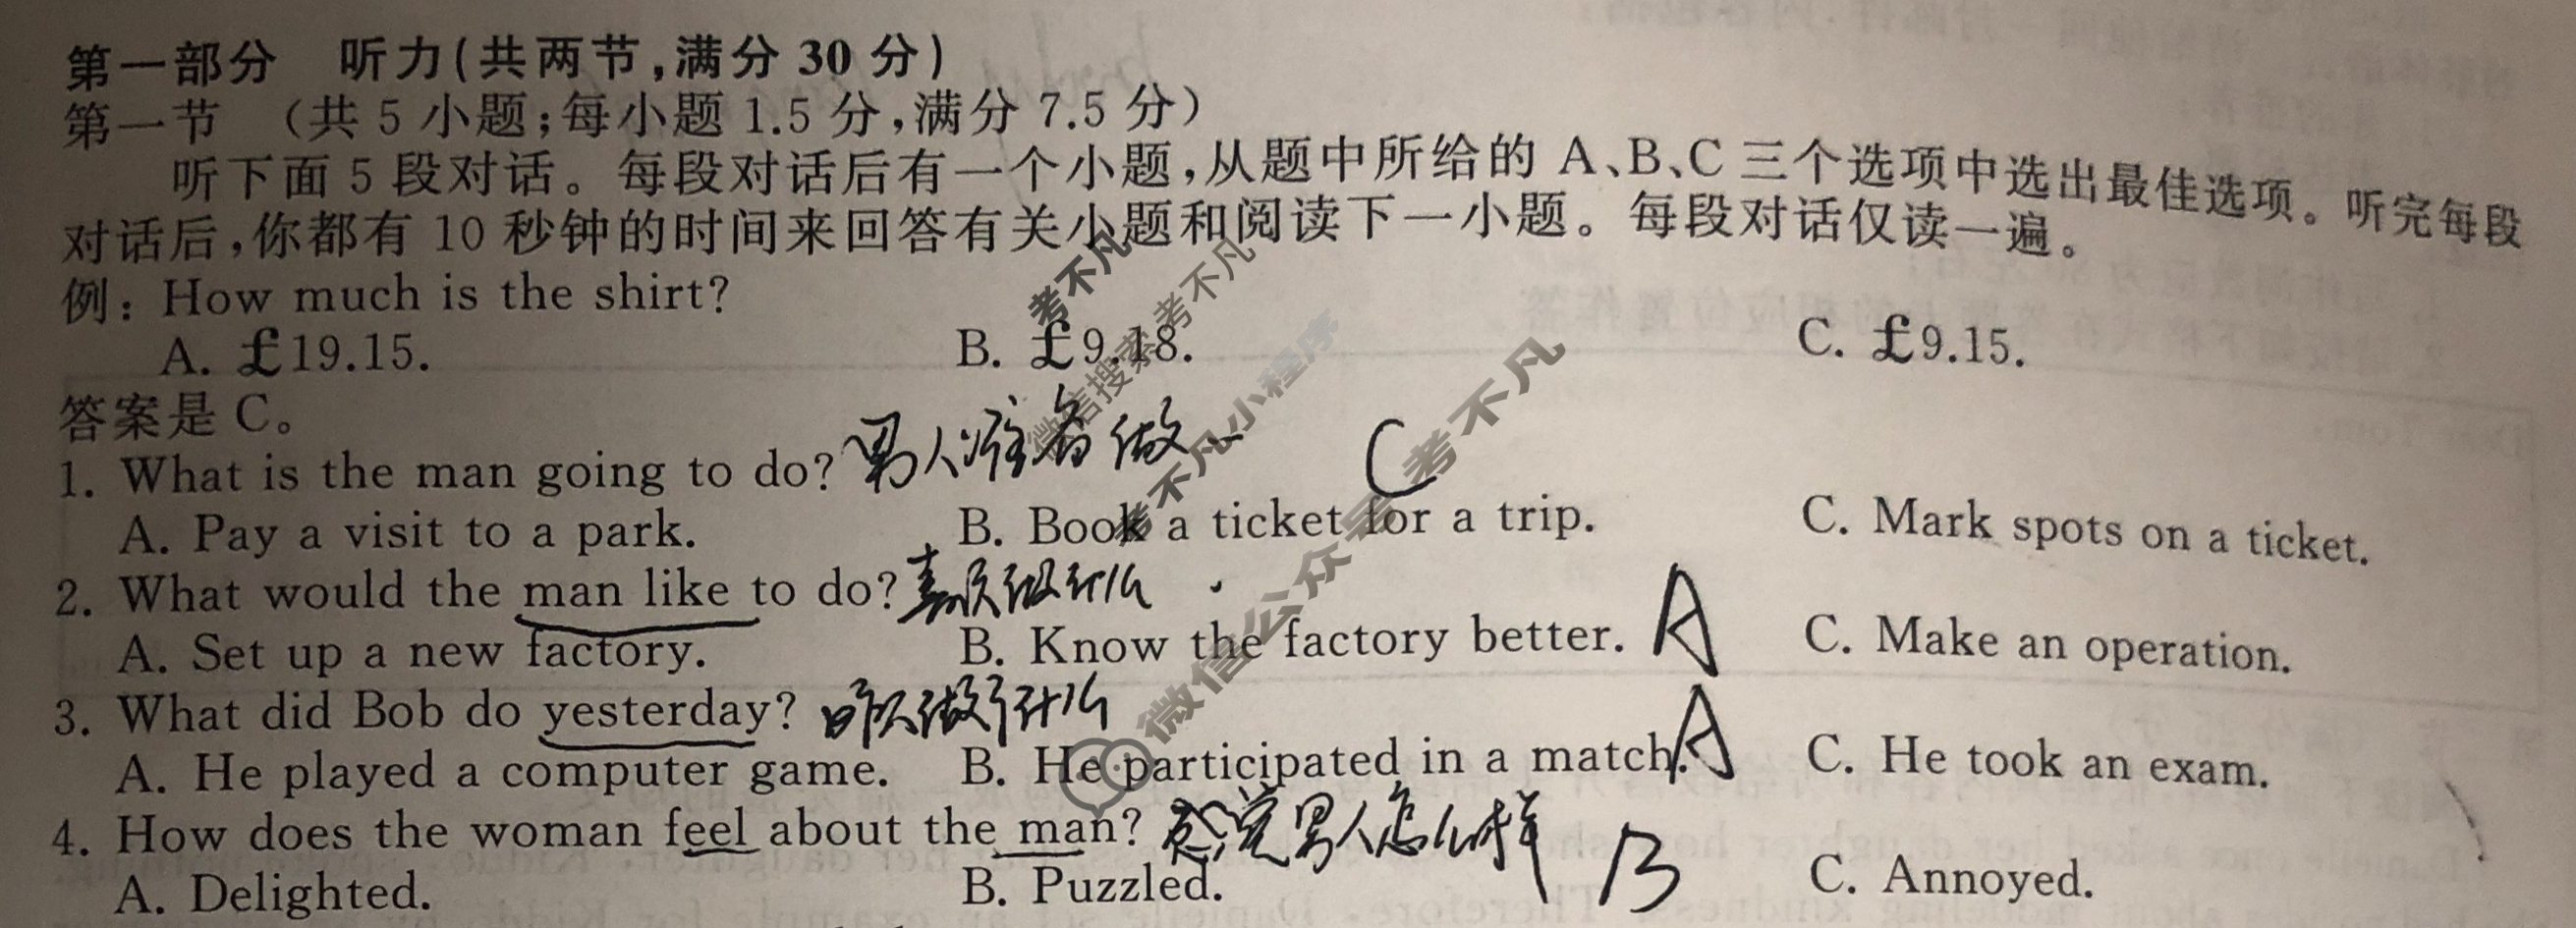 第一部分 听力(共两节,满分 30 分)
第一节 (共 5 小题;每小题 1.5 分,满分 7.5 分)
听下面 5 段对话。每段对话后有一个小题,从题中所给的 A、B、C 三个选项中选出最佳选项。听完每段
对话后,你都有 10 秒钟的时间来回答有关小题和阅读下一小题。每段对话仅读一遍。
例: How much is the shirt?
A. £19.15. B. £9.18. C. £9.15.
答案是 C。
1. What is the man going to do? 男人准备做 C
A. Pay a visit to a park. B. Book a ticket for a trip. C. Mark spots on a ticket.
2. What would the man like to do? 做什么 A
A. Set up a new factory. B. Know the factory better. C. Make an operation.
3. What did Bob do yesterday? 昨天做了什么 A
A. He played a computer game. B. He participated in a match. C. He took an exam.
4. How does the woman feel about the man? 感觉男人怎么样 B
A. Delighted. B. Puzzled. C. Annoyed.
考不凡
微信搜索考不凡
考不凡小程序
微信公众号考不凡